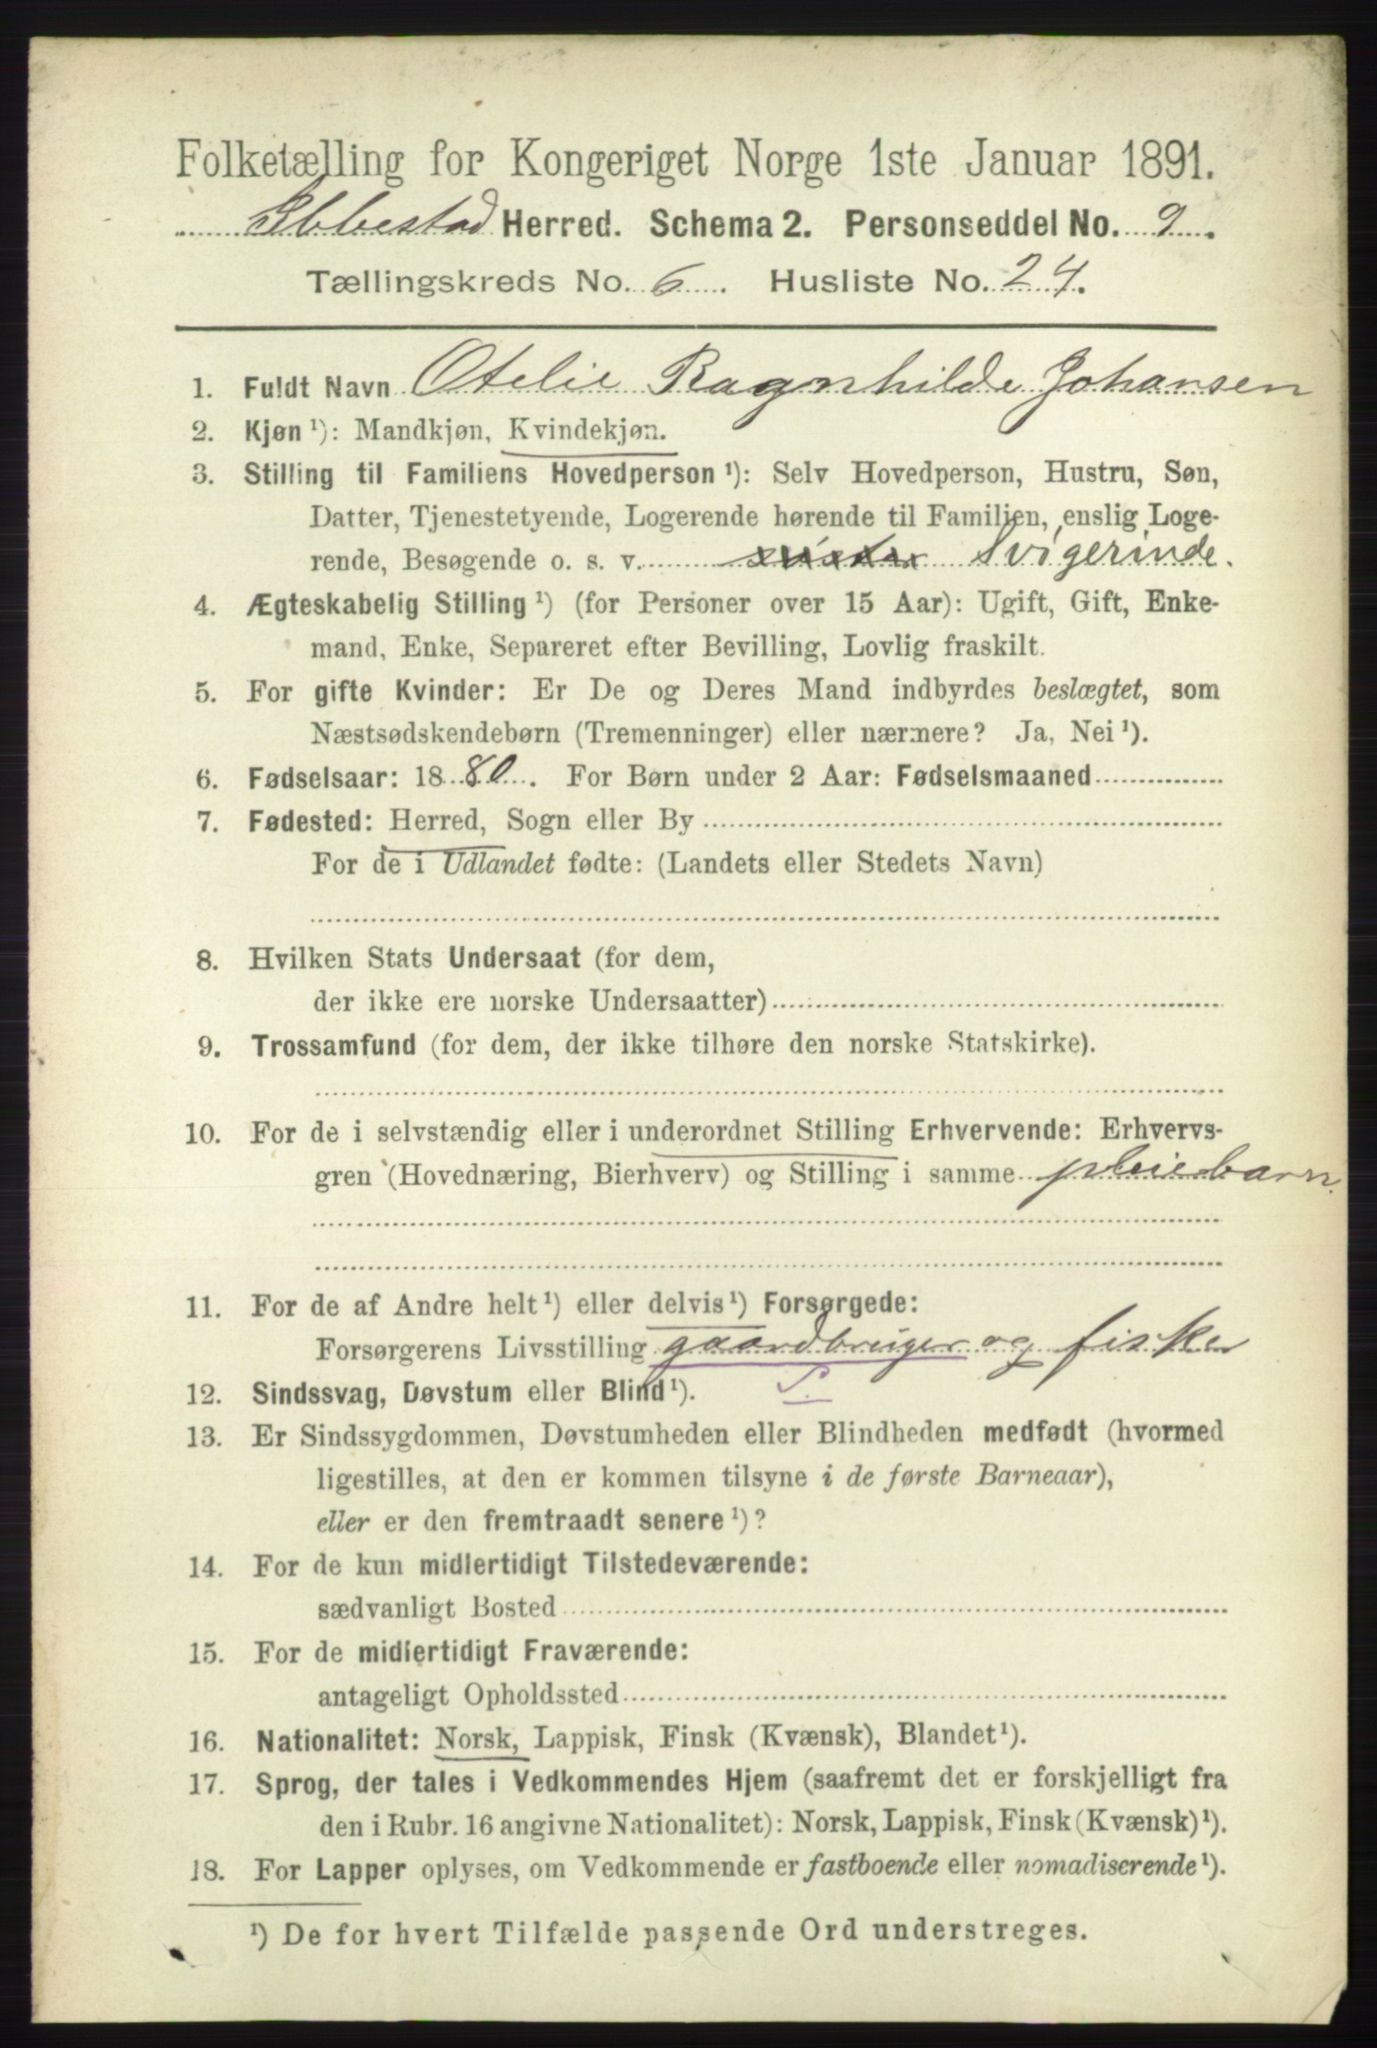 Folketælling for Kongeriget Norge 1ste Januar 1891.
Ibbestad Herred. Schema 2. Personseddel No. 9.
Tællingskreds No. 6. Husliste No. 24.
1. Fuldt Navn Otelie Ragnhilde Johansen
2. Kjøn ¹): Mandkjøn, Kvindekjøn.
3. Stilling til Familiens Hovedperson ¹): Selv Hovedperson, Hustru, Søn,
Datter, Tjenestetyende, Logerende hørende til Familien, enslig Loge-
rende, Besøgende o. s. v. Svigerinde.
4. Ægteskabelig Stilling ¹) (for Personer over 15 Aar): Ugift, Gift, Enke-
mand, Enke, Separeret efter Bevilling, Lovlig fraskilt.
5. For gifte Kvinder: Er De og Deres Mand indbyrdes beslægtet, som
Næstsødskendebørn (Tremenninger) eller nærmere? Ja, Nei ¹).
6. Fødselsaar: 1880. For Børn under 2 Aar: Fødselsmaaned
7. Fødested: Herred, Sogn eller By
For de i Udlandet fødte: (Landets eller Stedets Navn)
8. Hvilken Stats Undersaat (for dem,
der ikke ere norske Undersaatter)
9. Trossamfund (for dem, der ikke tilhøre den norske Statskirke).
10. For de i selvstændig eller i underordnet Stilling Erhvervende: Erhvervs-
gren (Hovednæring, Bierhverv) og Stilling i samme pleiebarn.
11. For de af Andre helt ¹) eller delvis ¹) Forsørgede:
Forsørgerens Livsstilling gaardbruger og fisker
12. Sindssvag, Døvstum eller Blind ¹). S.
13. Er Sindssygdommen, Døvstumheden eller Blindheden medfødt (hvormed
ligestilles, at den er kommen tilsyne i de første Barneaar),
eller er den fremtraadt senere ¹)?
14. For de kun midlertidigt Tilstedeværende:
sædvanligt Bosted
15. For de midlertidigt Fraværende:
antageligt Opholdssted
16. Nationalitet: Norsk, Lappisk, Finsk (Kvænsk), Blandet ¹).
17. Sprog, der tales i Vedkommendes Hjem (saafremt det er forskjelligt fra
den i Rubr. 16 angivne Nationalitet): Norsk, Lappisk, Finsk (Kvænsk) ¹).
18. For Lapper oplyses, om Vedkommende er fastboende eller nomadiserende ¹).
¹) De for hvert Tilfælde passende Ord understreges.